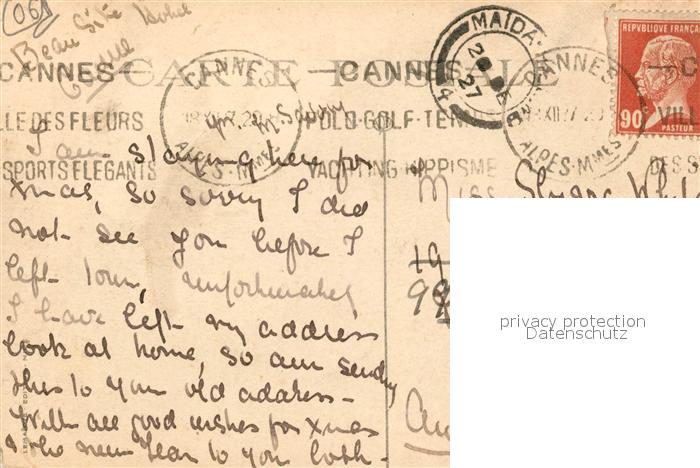 (061)
Beau Site Hotel
CARTE POSTALE
CANNES
CANNES
CANNES
LLE DES FLEURS
POLO-GOLF-TENNIS
VILL
SPORTS ELEGANTS
YACHTING HIPPISME
DES S
ALPES-MMES
MAIDA
27
CANNES
ALPES-MMES
REPUBLIQUE FRANÇAISE
90
PASTEUR
I am staying here for
Xmas, so sorry I did
not see you before I
left town, unfortunately
I have left my address
book at home, so am sending
this to your old address -
With all good wishes for Xmas
& the New Year to you both -
Miss
19
privacy protection
Datenschutz